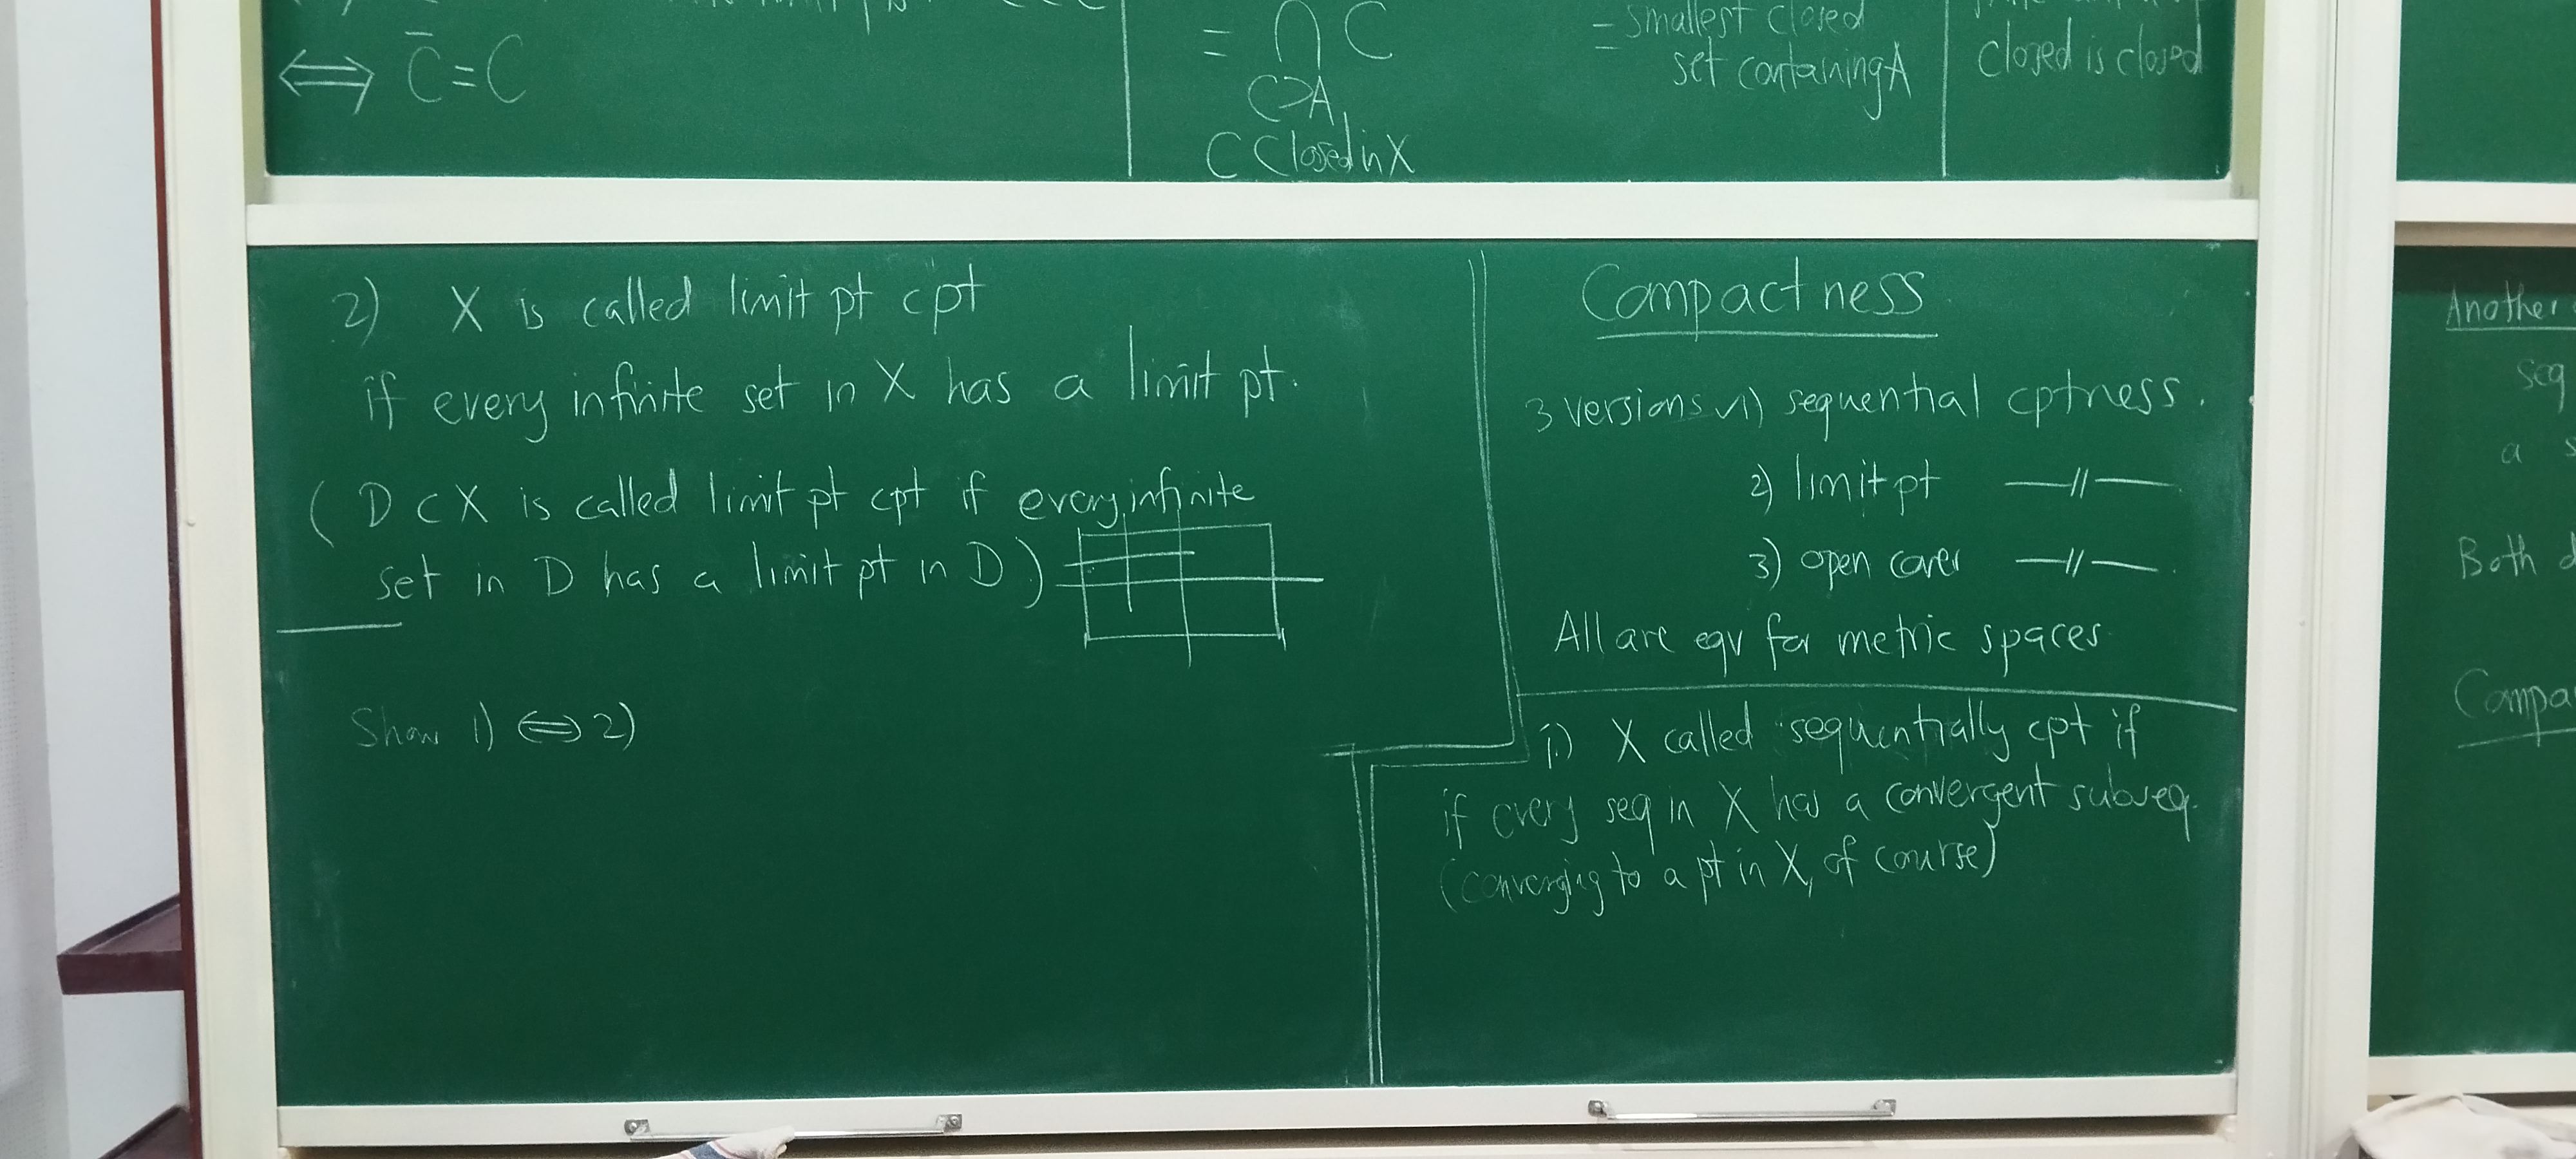 ⟺ C̄ = C
= ⋂ C
C⊃A
C Closed in X
= smallest closed
set containing A
closed is closed
2) X is called limit pt cpt
if every infinite set in X has a limit pt.
( D ⊂ X is called limit pt cpt if every infinite
set in D has a limit pt in D )
Show 1) ⟺ 2)
Compactness
3 versions 1) sequential cptness.
2) limit pt —//—
3) open cover —//—
All are eqv for metric spaces
1) X called "sequentially cpt if
if every seq in X has a convergent subseq.
(converging to a pt in X, of course)
Another
seq
a
Both